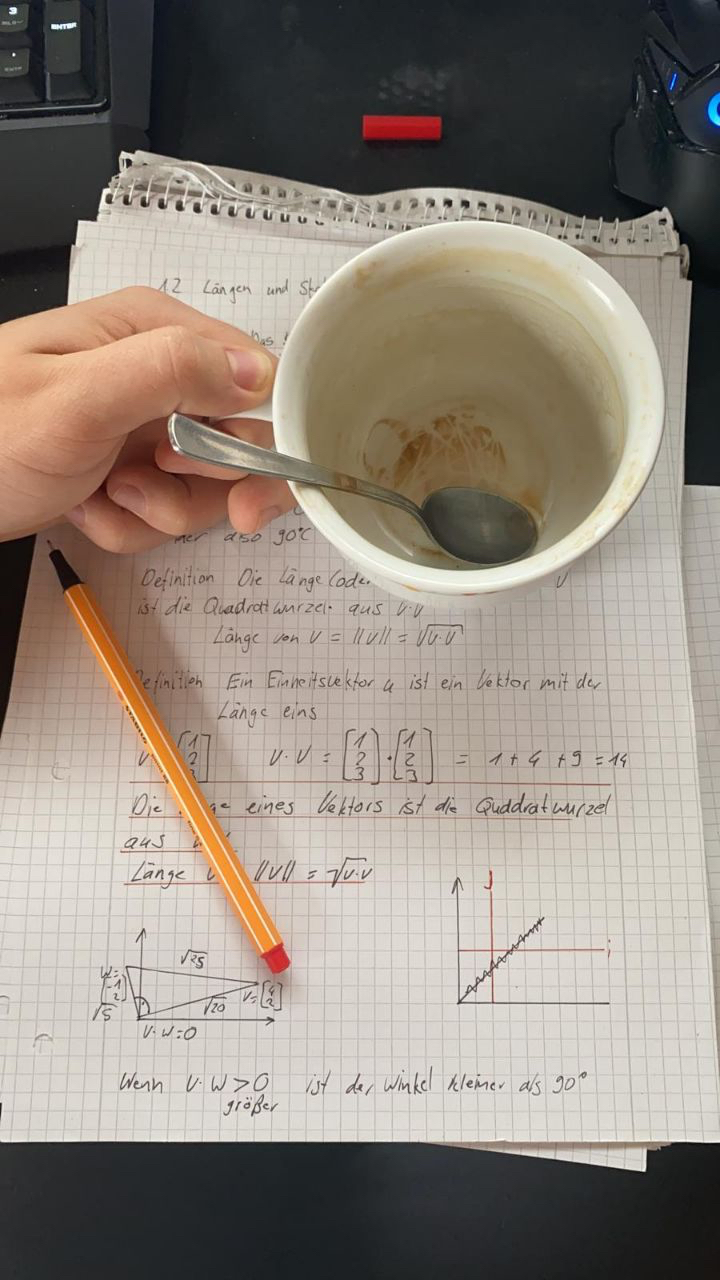 ENTER
1.2 Längen und
Das
90°C
Definition Die Länge (oder
ist die Quadratwurzel aus V·V
Länge von V = ||V|| = √V·V
Definition Ein Einheitsvektor u ist ein Vektor mit der
Länge eins
[1 2 3] V·V = [1 2 3]·[1 2 3] = 1 + 4 + 9 = 14
Die eines Vektors ist die Quadratwurzel
aus
Länge ||V|| = √V·V
√25
W= [-1 2]
√5
√20
V= [4 2]
V·W=0
j
i
Wenn V·W>0 ist der Winkel kleiner als 90°
größer